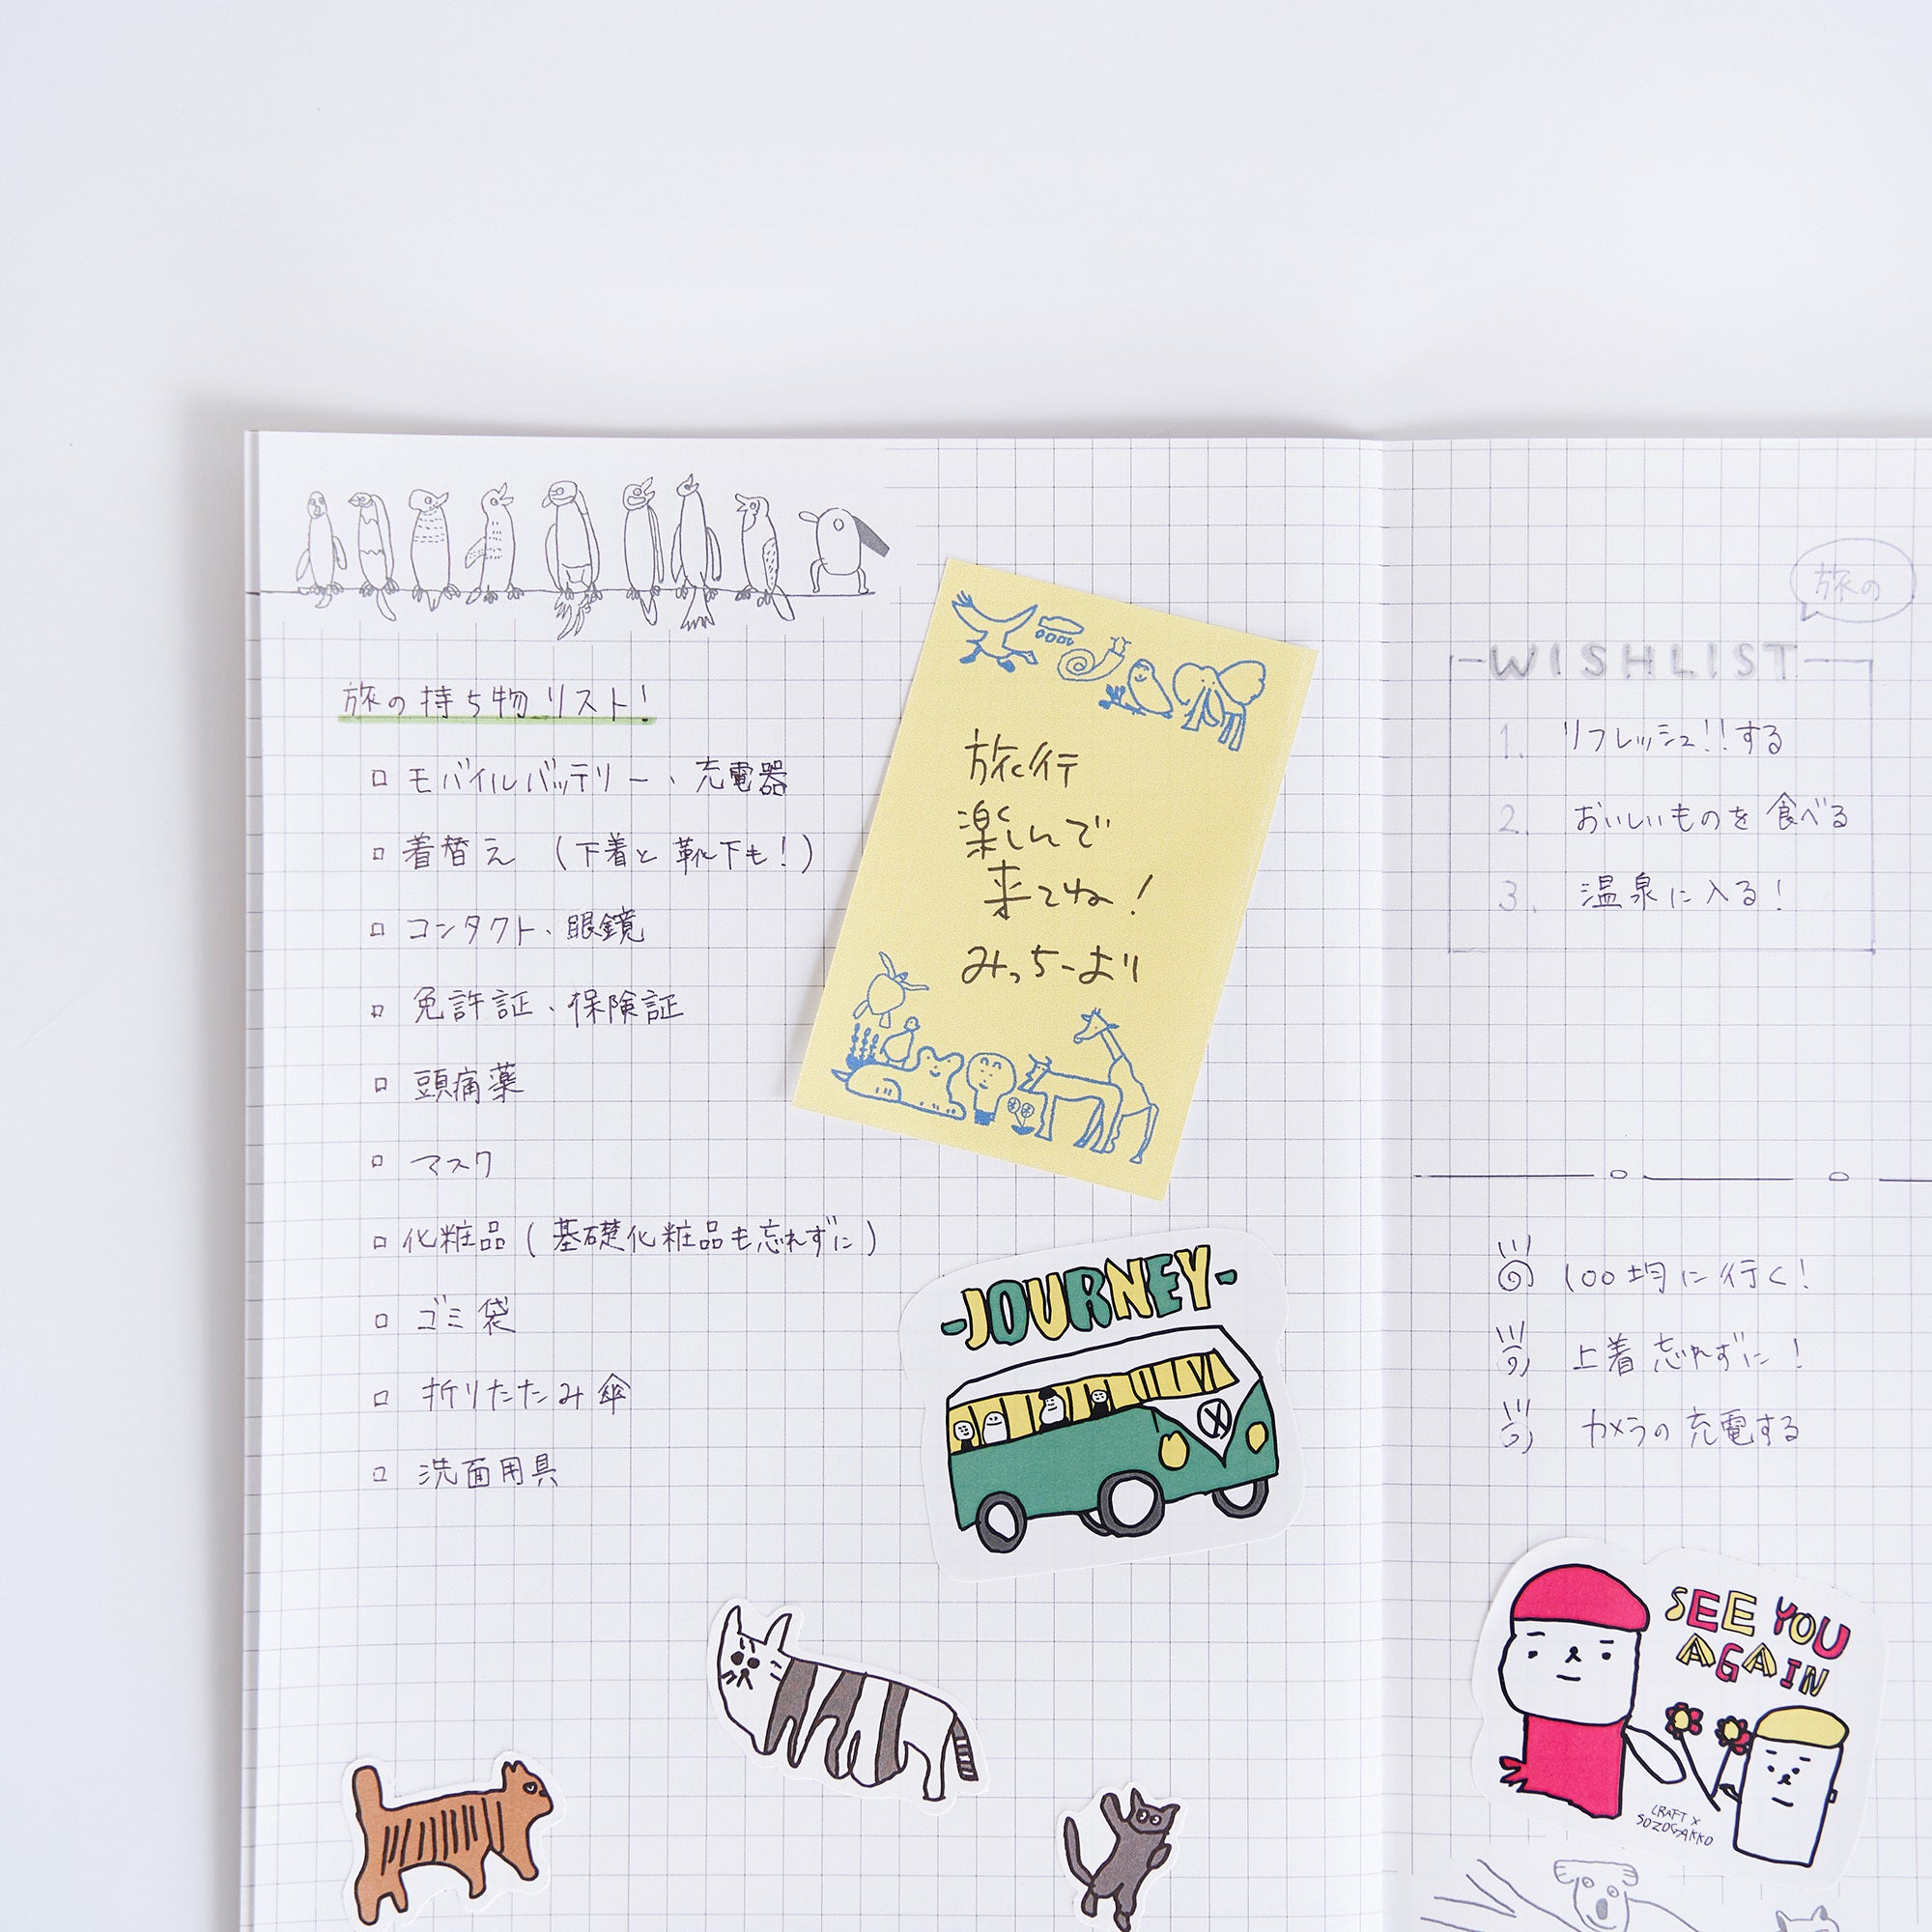 旅の持ち物リスト!
モバイルバッテリー、充電器
着替え (下着と靴下も!)
コンタクト、眼鏡
免許証、保険証
頭痛薬
マスク
化粧品(基礎化粧品も忘れずに)
ゴミ袋
折りたたみ傘
洗面用具
旅行
楽しんで
来てね!
みっちーより
-JOURNEY-
旅の
WISHLIST
1. リフレッシュ!!する
2. おいしいものを食べる
3. 温泉に入る!
100均に行く!
上着忘れずに!
カメラの充電する
SEE YOU
AGAIN
CRAFT X
SOZOGAKKO